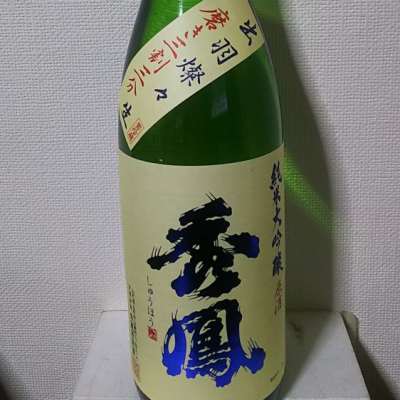 出羽燦々
磨き三割三分
生
純米大吟醸
原酒
秀鳳
しゅうほう